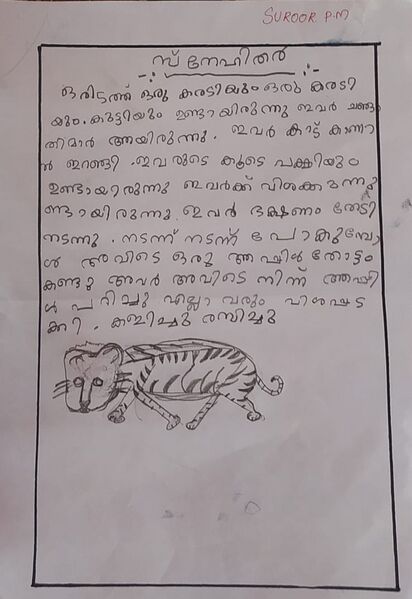 SUROOR P.M
സ്നേഹിതർ
ഒരിടത്ത് ഒരു കരടിയും ഒരു കരടി
യും. കുട്ടിയും ഉണ്ടായിരുന്നു ഇവർ ചങ്ങാ
തിമാർ ആയിരുന്നു. ഇവർ കാട് കാണാ
ൻ ഇറങ്ങി. ഇവരുടെ കൂടെ പക്ഷിയും
ഉണ്ടായിരുന്നു ഇവർക്ക് വിശക്കുന്നു
ണ്ടായിരുന്നു. ഇവർ ഭക്ഷണം തേടി
നടന്നു. നടന്ന് നടന്ന് പോകുമ്പോ
ൾ അവിടെ ഒരു ആപ്പിൾ തോട്ടം
കണ്ടു അവർ അവിടെ നിന്ന് ആപ്പി
ൾ പറിച്ചു എല്ലാ വരും വിശപ്പട
ക്കി. കളിച്ചു രസിച്ചു